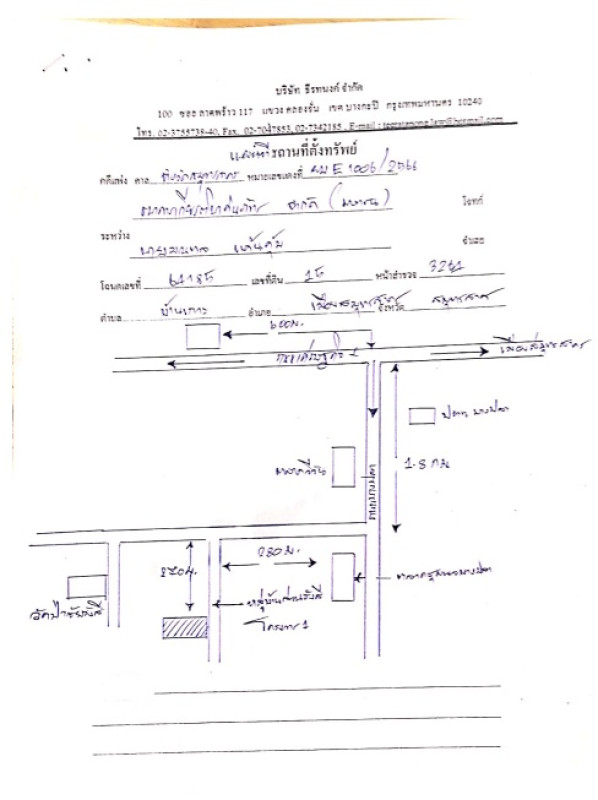 บริษัท ธีรทนงค์ จำกัด
100 ซอย ลาดพร้าว 117 แขวง คลองจั่น เขต บางกะปิ กรุงเทพมหานคร 10240
โทร. 02-3755739-40, Fax. 02-7047853, 02-7342185 , E-mail :
แผนที่สถานที่ตั้งทรัพย์
คดีแพ่ง ศาล จังหวัดสมุทรสาคร หมายเลขแดงที่ ผบ E 1006/2566
ธนาคารเกียรตินาคินภัทร จำกัด (มหาชน) โจทก์
ระหว่าง
นาย จำเลย
โฉนดเลขที่ 61185 เลขที่ดิน 15 หน้าสำรวจ 3261
ตำบล บ้านเกาะ อำเภอ เมืองสมุทรสาคร จังหวัด สมุทรสาคร
600 ม.
ถนนเศรษฐกิจ 1
เมืองสมุทรสาคร
ปตท. บางปลา
1.8 กม
280 ม.
250 ม.
วัดป่าชัยรังสี
หมู่บ้าน
โครงการ 1